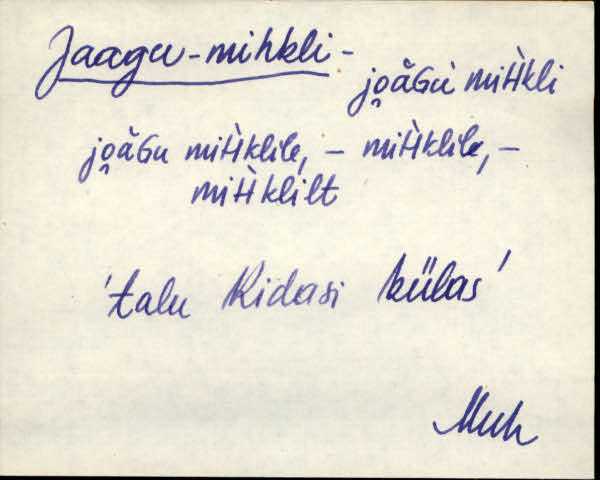 Jaagu-mihkli-
jo̭ăGù miH̀kli
jo̭ăGu miH̀klile, – miH̀klile, –
miH̀klilt
'talu Ridasi külas'
Muh